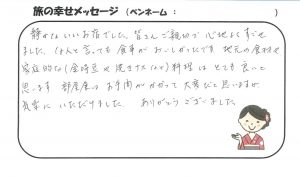 旅の幸せメッセージ (ペンネーム : )
静かないいお宿でした。皆さんご親切で心地よくすごせ
ました。なんと言っても食事がおいしかったです 地元の食材や
家庭的な(金時豆や焼きナスなど)料理はとても良いと
思います 部屋食はお手間がかかって大変だと思いますが
気楽にいただけました。 ありがとうございました。